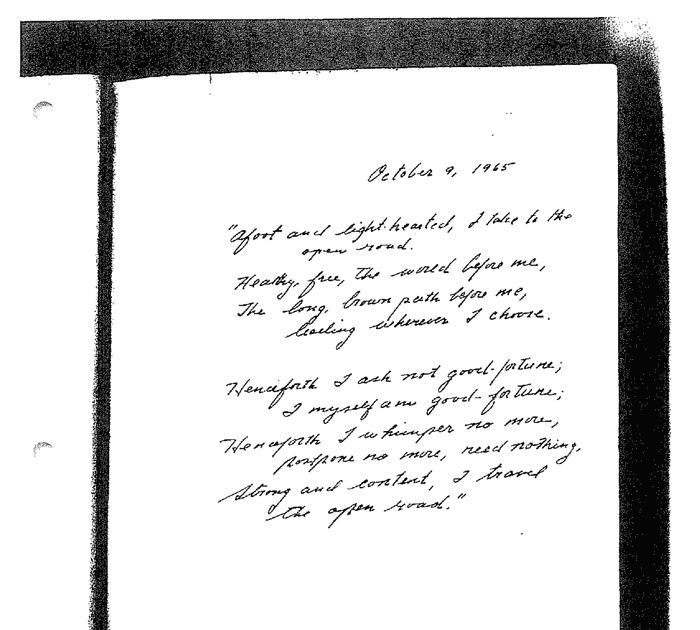 October 9, 1965
"Afoot and light-hearted, I take to the
open road.
Healthy, free, the world before me,
The long, brown path before me,
leading wherever I choose.
Henceforth I ask not good-fortune;
I myself am good-fortune;
Henceforth I whimper no more,
postpone no more, need nothing,
Strong and content, I travel
the open road."